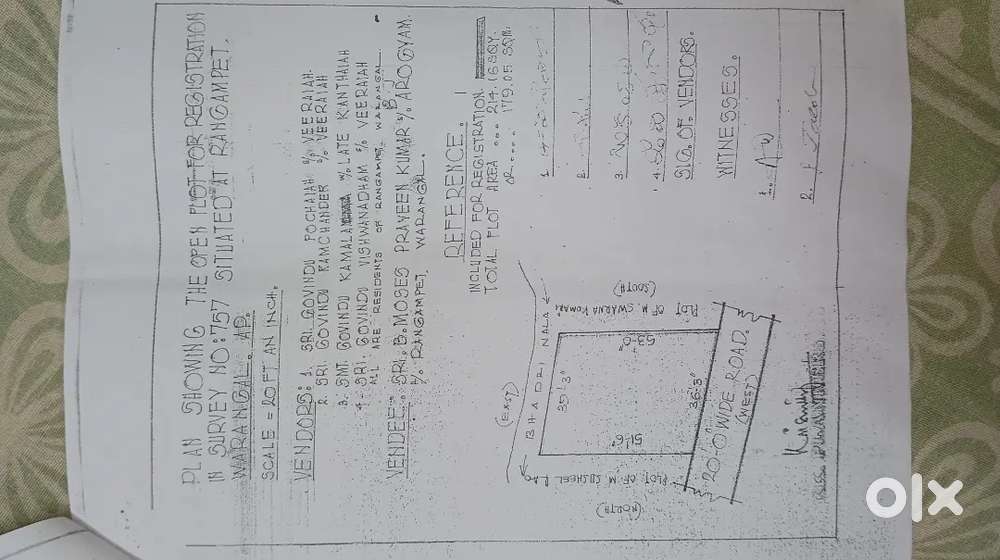 PLAN SHOWING THE OPEN PLOT FOR REGISTRATION
IN SURVEY NO: 757 SITUATED AT RANGAMPET.
WARANGAL. AP.
SCALE = 20 FT AN INCH.
VENDORS: 1. SRI. GOVINDU POCHAIAH S/o VEERAIAH.
2. SRI. GOVINDU RAMCHANDER S/o VEERAIAH
3. SMT. GOVINDU KAMALA W/o LATE KANTHAIAH
4. SRI. GOVINDU VISHWANADHAM S/o VEERAIAH
ALL ARE RESIDENTS OF RANGAMPET, WARANGAL.
VENDEE: SRI. B. MOSES PRAVEEN KUMAR S/o B.J AROGYAM.
R/o. RANGAMPET. WARANGAL.
REFERENCE.
INCLUDED FOR REGISTRATION.
TOTAL PLOT AREA ... 214.16 SQY.
OR .... 179.05 SQM.
(EAST)
BHADRI NALA
35'3"
(NORTH)
PLOT OF M SUSHEEL
51'-6"
53'-0"
PLOT OF M. SWARNA KUMAR.
(SOUTH)
36'3"
20'-0" WIDE ROAD.
(WEST)
1.
2.
3.
4.
SIG. OF. VENDORS.
WITNESSES.
1.
2. Jacob
olx